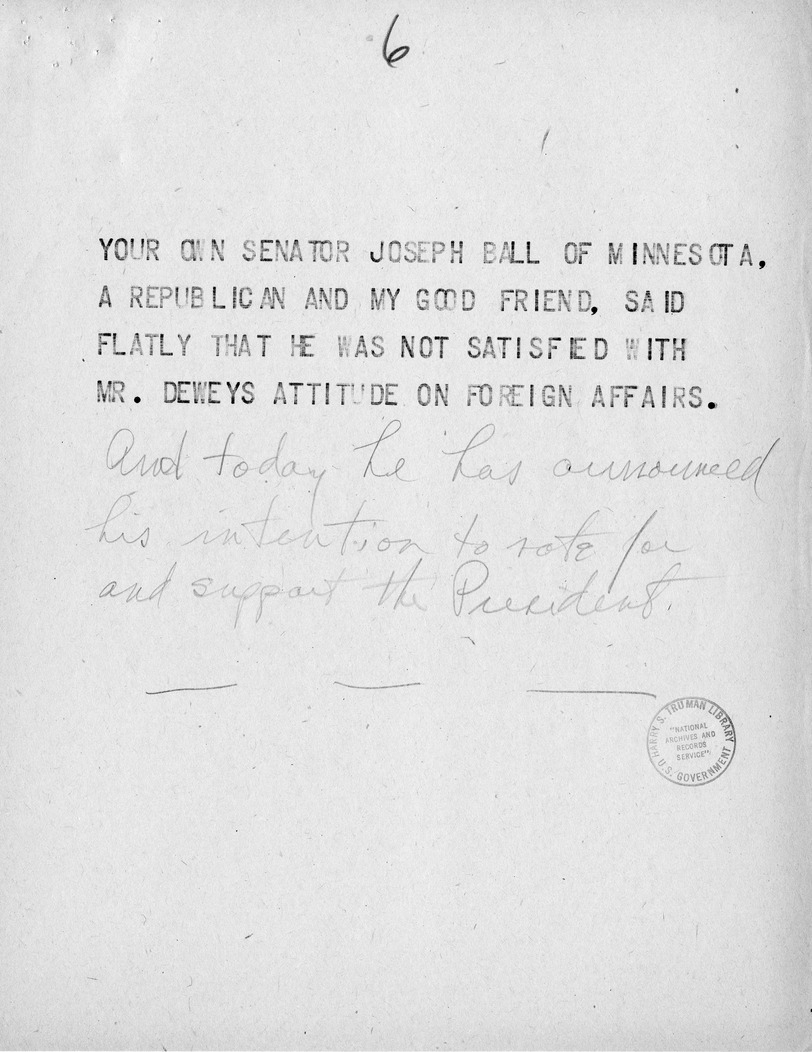 6
YOUR OWN SENATOR JOSEPH BALL OF MINNESOTA,
A REPUBLICAN AND MY GOOD FRIEND, SAID
FLATLY THAT HE WAS NOT SATISFIED WITH
MR. DEWEYS ATTITUDE ON FOREIGN AFFAIRS.
And today he has announced
his intention to vote for
and support the President.
HARRY S. TRUMAN LIBRARY
"NATIONAL
ARCHIVES AND
RECORDS
SERVICE"
U.S. GOVERNMENT